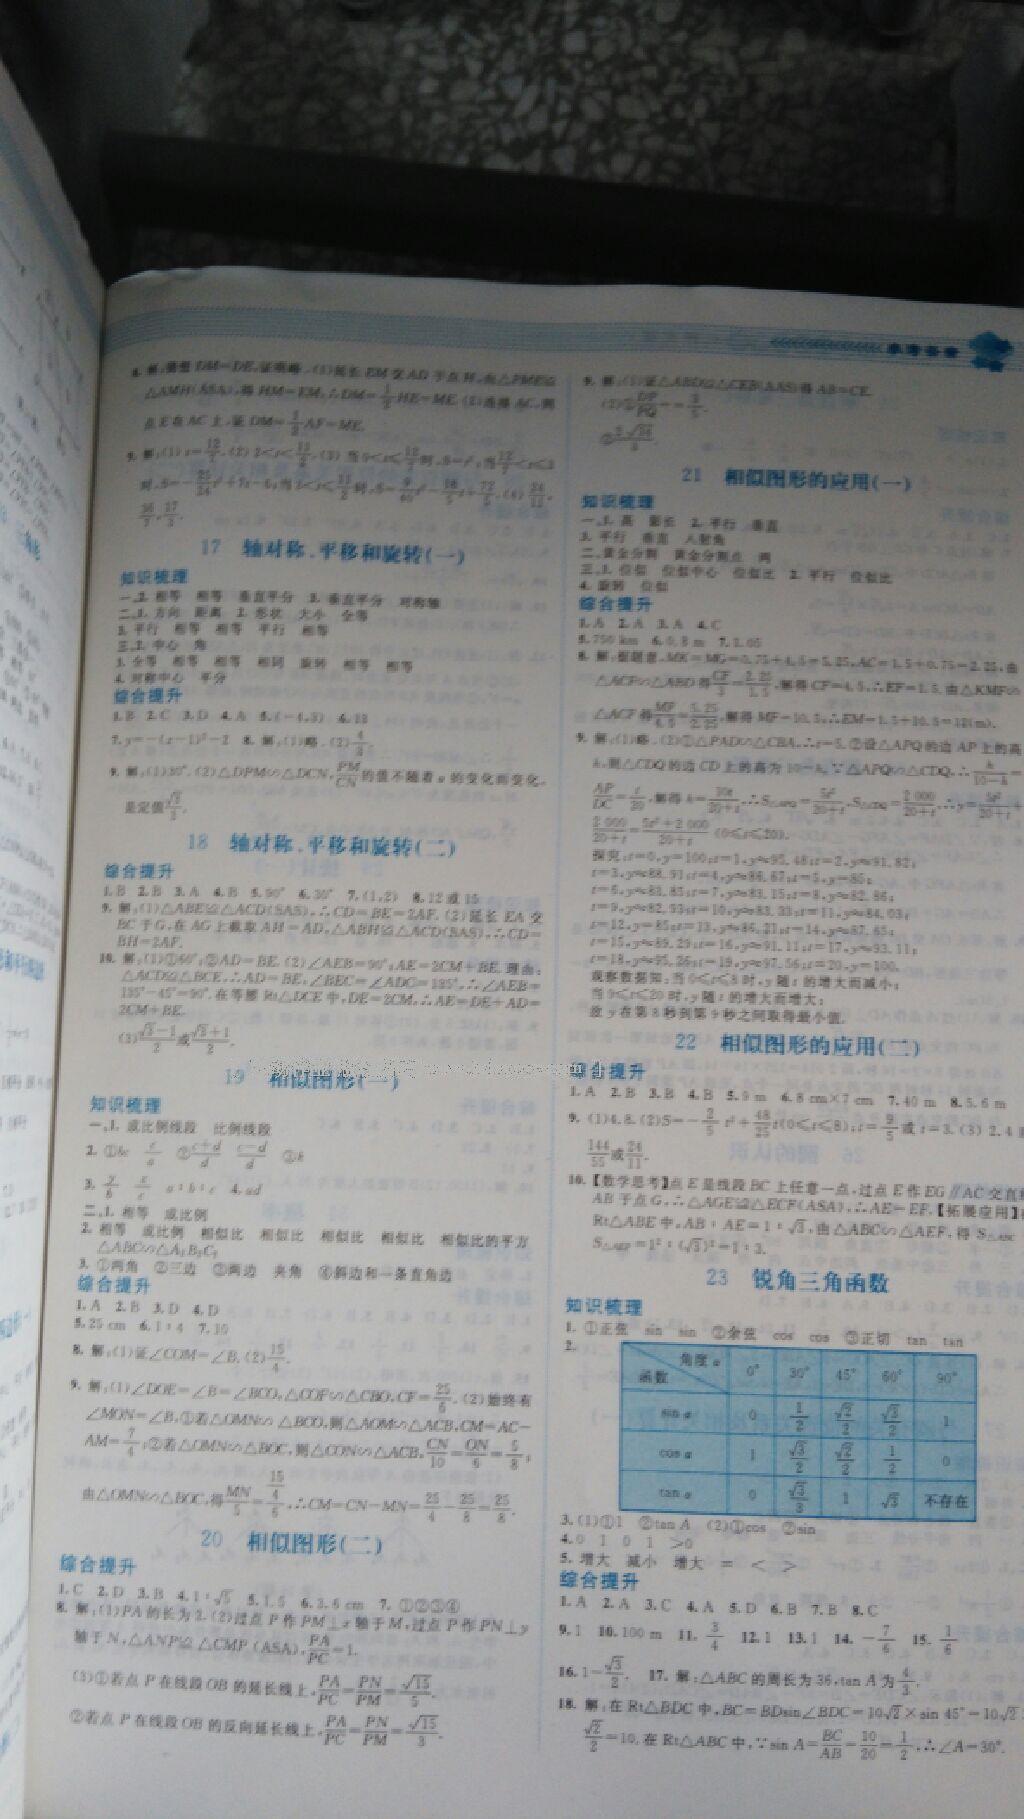 8. 解:猜想 DM=DE,证明略. (1)延长 EM 交 AD 于点 H,由△FME≌
△AMH(ASA),得 HM=EM,∴DM=1/2 HE=ME. (2)连接 AC,则
点 E 在 AC 上,证 DM=1/2 AF=ME.
17 轴对称、平移和旋转(一)
知识梳理
一、2. 相等 相等 垂直平分 3. 垂直平分 对称轴
二、1. 方向 距离 2. 形状 大小 全等
3. 平行 相等 相等 平行 相等
三、2. 中心 角
3. 全等 相等 相等 相同 旋转 相等 相等
4. 对称中心 平分
综合提升
1. B 2. C 3. D 4. A 5. (-4,3) 6. 13
7. y=-(x-1)²-2 8. 解:(1)略. (2) 4/3
9. 解:(1)30°. (2)△DPM∽△DCN,PM/CN 的值不随着 α 的变化而变化,
是定值 √3/3.
18 轴对称、平移和旋转(二)
综合提升
1. B 2. B 3. A 4. B 5. 90° 6. 30° 7. (1,2) 8. 12 或 15
9. 解:(1)△ABE≌△ACD(SAS),∴CD=BE=2AF. (2)延长 EA 交
BC 于 G,在 AG 上截取 AH=AD,△ABH≌△ACD(SAS),∴CD=
BH=2AF.
10. 解:(1)①60°;②AD=BE. (2)∠AEB=90°;AE=2CM+BE. 理由:
△ACD≌△BCE,∴AD=BE,∠BEC=∠ADC=135°,∴∠AEB=
135°-45°=90°. 在等腰 Rt△DCE 中,DE=2CM,∴AE=DE+AD=
2CM+BE.
(3) (√3-1)/2 或 (√3+1)/2.
19 相似图形(一)
知识梳理
一、1. 成比例线段 比例线段
2. ①bc c/a ②(c+d)/d (c-d)/d ③k
3. y/b z/c a:b:c 4. ad
二、1. 相等 成比例
2. 相等 成比例 相似比 相似比 相似比 相似比 相似比的平方
△ABC∽△A₁B₁C₁
3. ①两角 ②三边 ③两边 夹角 ④斜边和一条直角边
综合提升
1. A 2. B 3. D 4. D
5. 25 cm 6. 1:4 7. 10
8. 解:(1)证∠COM=∠B. (2) 15/4.
9. 解:(1)∠DOE=∠B=∠BCO,△COF∽△CBO,CF=25/6. (2)始终有
∠MON=∠B,①若△OMN∽△BCO,则△AOM∽△ACB,CM=AC-
AM=7/4;②若△OMN∽△BOC,则△CON∽△ACB,CN/10=ON/6=5/8;
由△OMN∽△BOC,得 MN/5=(15/4)/6,∴CM=CN-MN=25/4-25/8=25/8.
20 相似图形(二)
综合提升
1. C 2. D 3. B 4. 1:√5 5. 1.5 6. 3.6 cm 7. ①②③④
8. 解:(1)PA 的长为 2. (2)过点 P 作 PM⊥x 轴于 M,过点 P 作 PN⊥y
轴于 N,△ANP≌△CMP (ASA),PA/PC=1.
(3)①若点 P 在线段 OB 的延长线上,PA/PC=PN/PM=√15/5.
②若点 P 在线段 OB 的反向延长线上,PA/PC=PN/PM=√15/3.
9. 解:(1)证△ABD≌△CEB(AAS)得 AB=CE.
21 相似图形的应用(一)
知识梳理
一、1. 高 影长 2. 平行 垂直
3. 平行 垂直 入射角
二、黄金分割 黄金分割点 两
三、1. 位似 位似中心 位似比 2. 平行 位似比
4. 旋转 位似
综合提升
1. A 2. A 3. A 4. C
5. 750 km 6. 0.8 m 7. 1.05
8. 解:据题意,MK=MG=0.75+4.5=5.25,AC=1.5+0.75=2.25,由
△ACF∽△ABD 得 CF/3=2.25/1.5,解得 CF=4.5,∴EF=1.5,由△KMF∽
△ACF 得 MF/4.5=5.25/2.25,解得 MF=10.5,∴EM=1.5+10.5=12(m).
9. 解:(1)略. (2)①△PAD∽△CBA,∴t=5. ②设△APQ 的边 AP 上的高
h,则△CDQ 的边 CD 上的高为 10-h,∵△APQ∽△CDQ,∴h/(10-h)=
AP/DC=t/20,解得 h=10t/(20+t),∴S△APQ=5t²/(20+t),S△CDQ=2 000/(20+t),∴y=5t²/(20+t)+
2 000/(20+t)=(5t²+2 000)/(20+t) (0≤t≤20).
探究:t=0,y=100;t=1,y≈95.48;t=2,y≈91.82;
t=3,y≈88.91;t=4,y≈86.67;t=5,y=85;
t=6,y≈83.85;t=7,y≈83.15;t=8,y≈82.86;
t=9,y≈82.93;t=10,y≈83.33;t=11,y≈84.03;
t=12,y=85;t=13,y≈86.21;t=14,y≈87.65;
t=15,y≈89.29;t=16,y≈91.11;t=17,y≈93.11;
t=18,y≈95.26;t=19,y≈97.56;t=20,y=100.
观察数据知:当 0≤t≤8 时,y 随 t 的增大而减小;
当 9≤t≤20 时,y 随 t 的增大而增大;
故 y 在第 8 秒到第 9 秒之间取得最小值.
22 相似图形的应用(二)
综合提升
1. A 2. B 3. B 4. B 5. 9 m 6. 8 cm×7 cm 7. 40 m 8. 5.6 m
9. (1)4.8. (2)S=-2/5 t²+48/25 t(0≤t≤8);t=9/5 或 t=3. (3) 2.4
144/55 或 24/11.
10. 【数学思考】点 E 是线段 BC 上任意一点,过点 E 作 EG∥AC 交直
AB 于点 G,∴△AGE≌△ECF(ASA),∴AE=EF.【拓展应用】
Rt△ABE 中,AB:AE=1:√3,由△ABC∽△AEF,得 S△ABC
S△AEF=1²:(√3)²=1:3.
23 锐角三角函数
知识梳理
1. ①正弦 sin sin ②余弦 cos cos ③正切 tan tan
2.
角度 α 0° 30° 45° 60° 90°
函数
sin α 0 1/2 √2/2 √3/2 1
cos α 1 √3/2 √2/2 1/2 0
tan α 0 √3/3 1 √3 不存在
3. (1)①1 ②tan A (2)①cos ②sin
4. 0 1 0 1 >0
5. 增大 减小 增大 = < >
综合提升
1. A 2. A 3. C 4. A 5. D 6. B 7. B 8. C
9. 1 10. 100 m 11. 3/4 12. 1 13. 1 14. -7/6 15. 1/6
16. 1-√3/2. 17. 解:△ABC 的周长为 36,tan A 为 4/3.
18. 解:在 Rt△BDC 中,BC=BDsin∠BDC=10√2×sin 45°=10√2
√2/2=10. 在 Rt△ABC 中,∵sin A=BC/AB=10/20=1/2,∴∠A=30°.